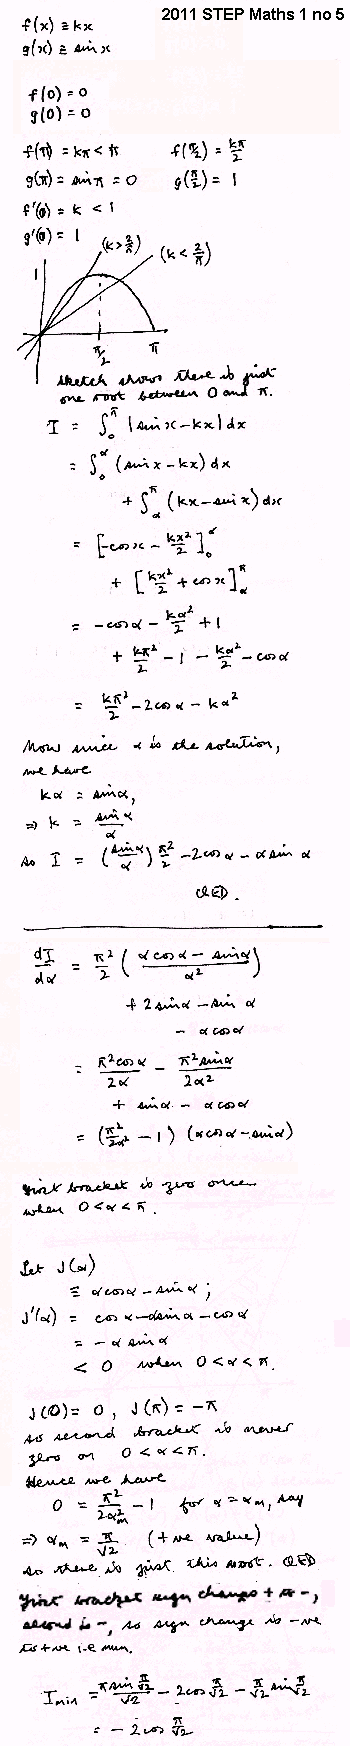 2011 STEP Maths 1 no 5
f(x) ≡ kx
g(x) ≡ sin x
f(0) = 0
g(0) = 0
f(π) = kπ < π f(π/2) = kπ/2
g(π) = sin π = 0 g(π/2) = 1
f'(0) = k < 1
g'(0) = 1
(k > 2/π) (k < 2/π)
1
π/2 π
sketch shows there is just
one root between 0 and π.
I = ∫₀^π |sin x - kx| dx
= ∫₀^α (sin x - kx) dx
+ ∫_α^π (kx - sin x) dx
= [-cos x - kx²/2]₀^α
+ [kx²/2 + cos x]_α^π
= -cos α - kα²/2 + 1
+ kπ²/2 - 1 - kα²/2 - cos α
= kπ²/2 - 2cos α - kα²
Now since α is the solution,
we have
kα = sin α,
⇒ k = sin α/α
so I = (sin α/α) π²/2 - 2cos α - α sin α
QED.
dI/dα = π²/2 ((α cos α - sin α)/α²)
+ 2 sin α - sin α
- α cos α
= π² cos α/2α - π² sin α/2α²
+ sin α - α cos α
= (π²/2α² - 1) (α cos α - sin α)
First bracket is zero once
when 0 < α < π.
Let J(α)
≡ α cos α - sin α;
J'(α) = cos α - α sin α - cos α
= - α sin α
< 0 when 0 < α < π.
J(0) = 0, J(π) = -π
so second bracket is never
zero on 0 < α < π.
Hence we have
0 = π²/2α_m² - 1 for α = α_m, say
⇒ α_m = π/√2 (+ve value)
so there is just this root. QED
First bracket sign changes + to -,
second is -, so sign change is -ve
to +ve i.e. min.
I_min = π sin π/√2 /√2 - 2cos π/√2 - π/√2 sin π/√2
= - 2 cos π/√2